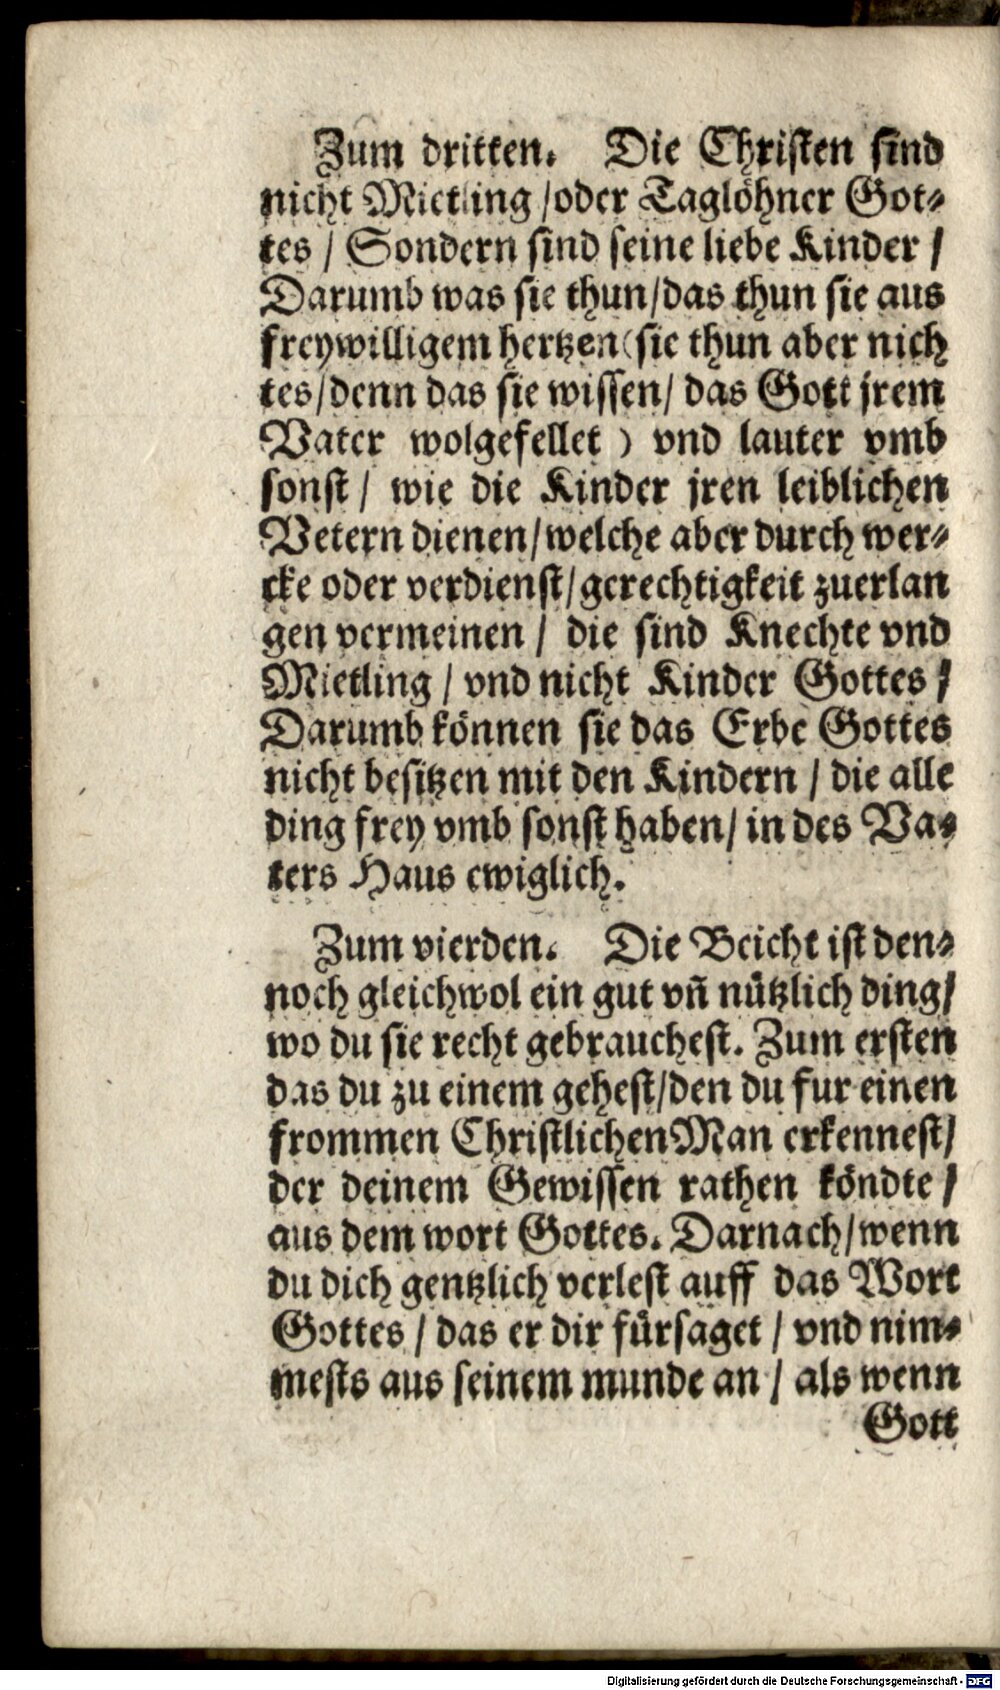 Zum dritten. Die Christen sind
nicht Mietling / oder Taglöhner Got-
tes / Sondern sind seine liebe Kinder /
Darumb was sie thun / das thun sie aus
freywilligem hertzen (sie thun aber nich
tes / denn das sie wissen / das Gott jrem
Vater wolgefellet ) vnd lauter vmb
sonst / wie die Kinder jren leiblichen
Vetern dienen / welche aber durch wer-
cke oder verdienst / gerechtigkeit zuerlan
gen vermeinen / die sind Knechte vnd
Mietling / vnd nicht Kinder Gottes /
Darumb können sie das Erbe Gottes
nicht besitzen mit den Kindern / die alle
ding frey vmb sonst haben / in des Va-
ters Haus ewiglich.
Zum vierden. Die Beicht ist den-
noch gleichwol ein gut vn̄ nützlich ding /
wo du sie recht gebrauchest. Zum ersten
das du zu einem gehest / den du fur einen
frommen Christlichen Man erkennest /
der deinem Gewissen rathen köndte /
aus dem wort Gottes. Darnach / wenn
du dich gentzlich verlest auff das Wort
Gottes / das er dir fürsaget / vnd nim-
mests aus seinem munde an / als wenn
Gott
Digitalisierung gefördert durch die Deutsche Forschungsgemeinschaft - DFG